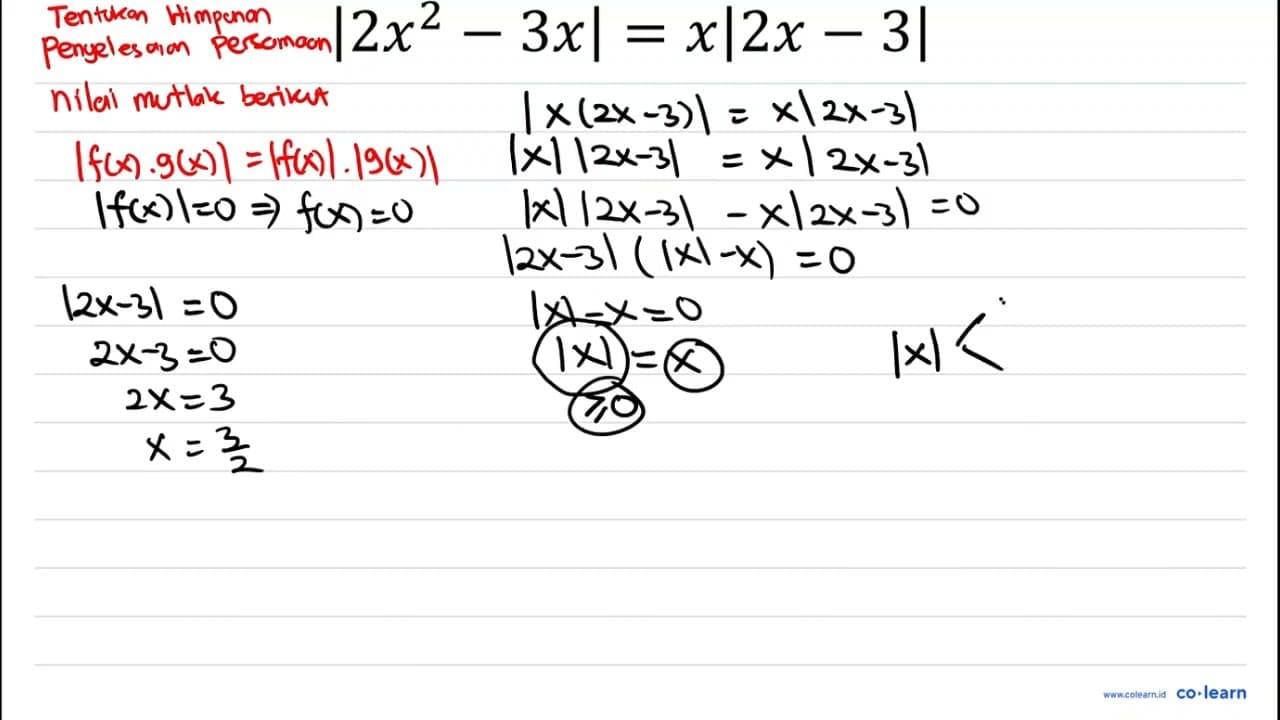 Tentukan Himpunan
Penyelesaian Persamaan
nilai mutlak berikut
|2x² − 3x| = x|2x − 3|
|f(x).g(x)| = |f(x)|.|g(x)|
|f(x)|=0 ⇒ f(x)=0
|2x-3| = 0
2x-3=0
2x=3
x = 3/2
|x(2x-3)| = x|2x-3|
|x||2x-3| = x|2x-3|
|x||2x-3| - x|2x-3| = 0
|2x-3|(|x|-x) = 0
|x|-x=0
|x| = x
≥0
|x| <
www.colearn.id co·learn